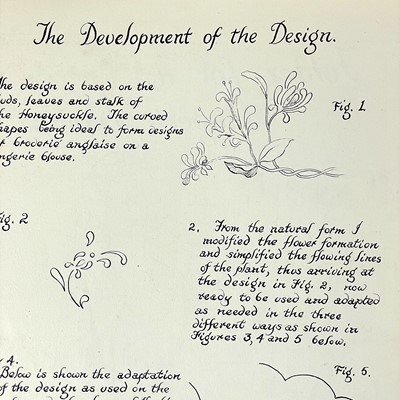 The Development of the Design.
he design is based on the
uds, leaves and stalk of
he Honeysuckle. The curved
hapes being ideal to form designs
r broderie anglaise on a
ngerie blouse.
Fig. 1.
ig. 2
2. From the natural form I
modified the flower formation
and simplified the flowing lines
of the plant, thus arriving at
the design in Fig. 2, now
ready to be used and adapted
as needed in the three
different ways as shown in
Figures 3, 4 and 5 below.
4.
Below is shown the adaptation
of the design as used on the
Fig. 5.